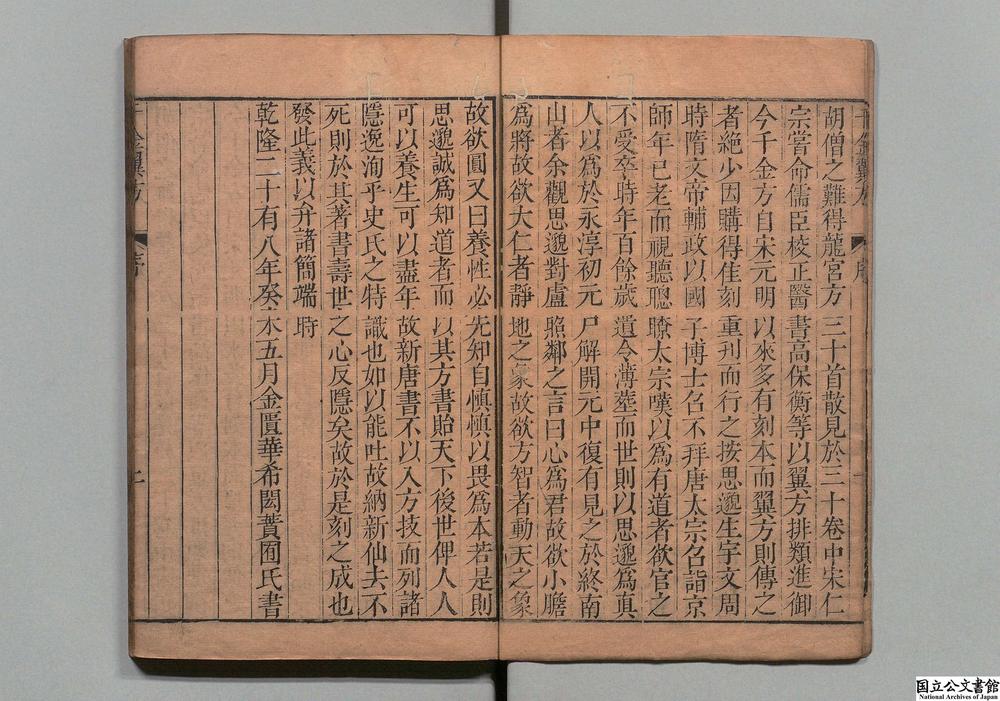 胡僧之難得龍宮方三十首散見於三十卷中宋仁
宗嘗命儒臣校正醫書高保衡等以翼方排類進御
今千金方自宋元明以來多有刻本而翼方則傳之
者絶少因購得佳刻重刋而行之按思邈生宇文周
時隋文帝輔政以國子博士召不拜唐太宗召詣京
師年已老而視聽聰瞭太宗嘆以爲有道者欲官之
不受卒時年百餘歲遺令薄塟而世則以思邈爲真
人以爲於永淳初元尸解開元中復有見之於終南
山者余觀思邈對盧照鄰之言曰心爲君故欲小膽
爲將故欲大仁者靜地之象故欲方智者動天之象
故欲圓又曰養性必先知自慎慎以畏爲本若是則
思邈誠爲知道者而以其方書貽天下後世俾人人
可以養生可以盡年故新唐書不以入方技而列諸
隱逸洵乎史氏之特識也如以能吐故納新仙去不
死則於其著書壽世之心反隱矣故於是刻之成也
發此義以弁諸簡端時
乾隆二十有八年癸未五月金匱華希閎蕡囿氏書
千金翼方
序
國立公文書館
National Archives of Japan